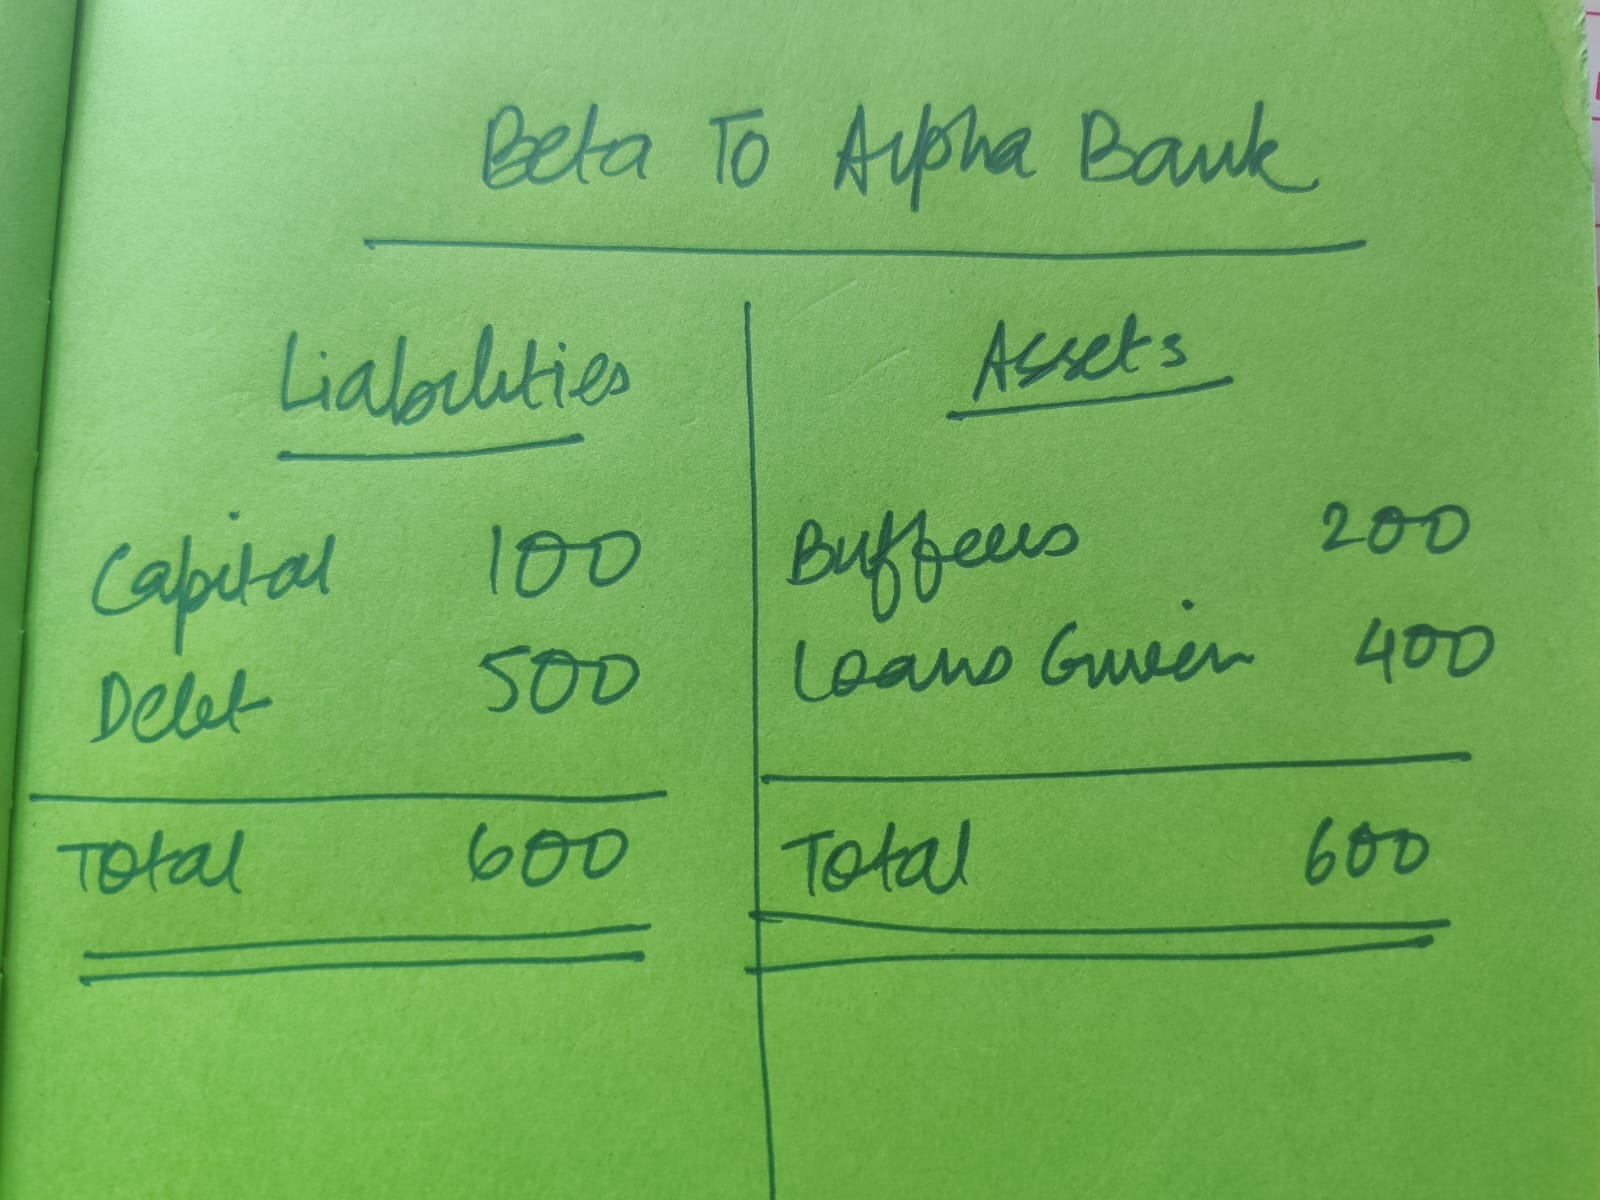 Beta To Alpha Bank
Liabilities
Assets
Capital 100
Buffers 200
Debt 500
Loans Given 400
Total 600
Total 600